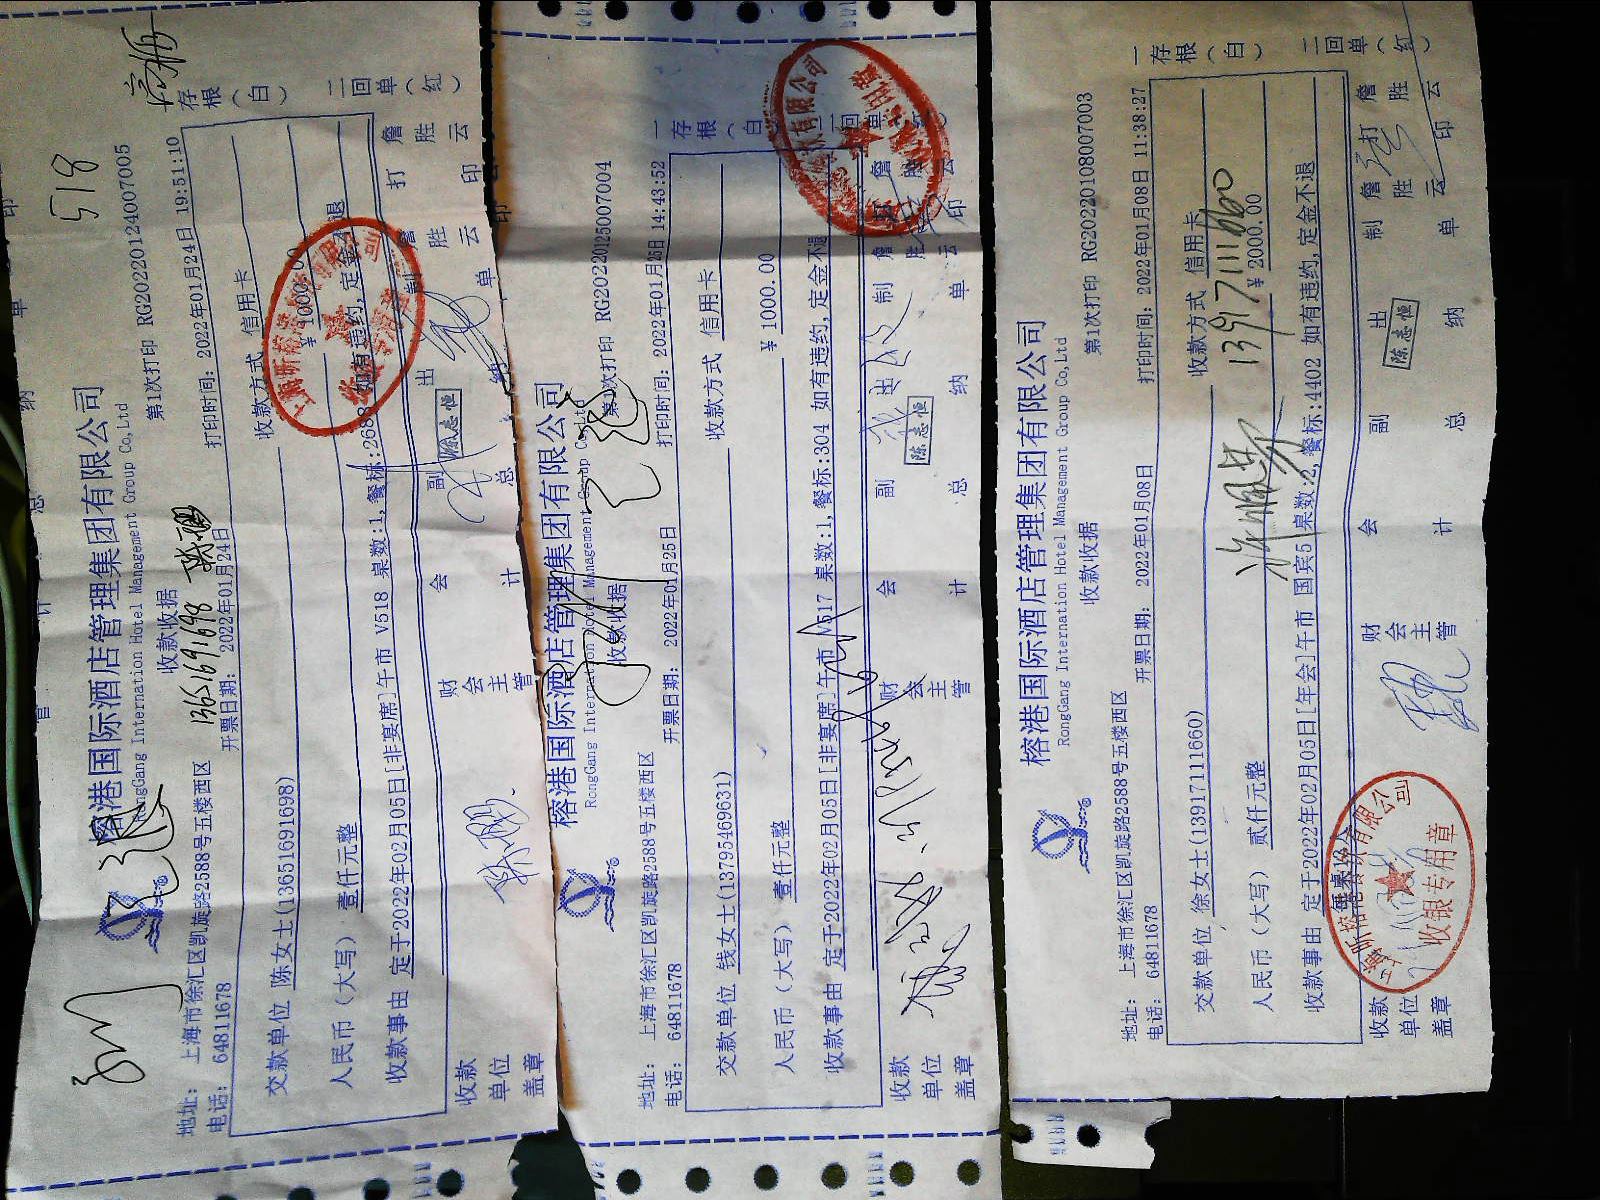 榕港国际酒店管理集团有限公司
RongGang International Hotel Management Group Co,Ltd
收款收据
第1次打印 RG20220124007005
13651691698 陈
518
地址: 上海市徐汇区凯旋路2588号五楼西区
电话: 64811678
开票日期: 2022年01月24日
打印时间: 2022年01月24日 19:51:10
交款单位 陈女士(13651691698)
收款方式 信用卡
人民币(大写) 壹仟元整
¥ 1000.00
收款事由 定于2022年02月05日[非宴席]午市 V518 桌数:1,餐标:268 如有违约,定金不退
一存根(白)
二回单(红)
收款单位盖章
财会主管
会计
副总
出纳
陈志恒
制单
詹胜云
打印
詹胜云
榕港国际酒店管理集团有限公司
RongGang International Hotel Management Group Co,Ltd
收款收据
第1次打印 RG20220125007004
地址: 上海市徐汇区凯旋路2588号五楼西区
电话: 64811678
开票日期: 2022年01月25日
打印时间: 2022年01月25日 14:43:52
交款单位 钱女士(13795469631)
收款方式 信用卡
人民币(大写) 壹仟元整
¥ 1000.00
收款事由 定于2022年02月05日[非宴席]午市 V517 桌数:1,餐标:304 如有违约,定金不退
一存根(白)
二回单(红)
收款单位盖章
财会主管
会计
副总
出纳
陈志恒
制单
詹胜云
打印
詹胜云
榕港国际酒店管理集团有限公司
RongGang International Hotel Management Group Co,Ltd
收款收据
第1次打印 RG20220108007003
地址: 上海市徐汇区凯旋路2588号五楼西区
电话: 64811678
开票日期: 2022年01月08日
打印时间: 2022年01月08日 11:38:27
交款单位 徐女士(13917111660)
收款方式 信用卡
13917111660
人民币(大写) 贰仟元整
¥ 2000.00
收款事由 定于2022年02月05日[年会]午市 国宾5 桌数:2,餐标:4402 如有违约,定金不退
一存根(白)
二回单(红)
收款单位盖章
收银专用章
财会主管
会计
副总
出纳
陈志恒
制单
詹胜云
打印
詹胜云